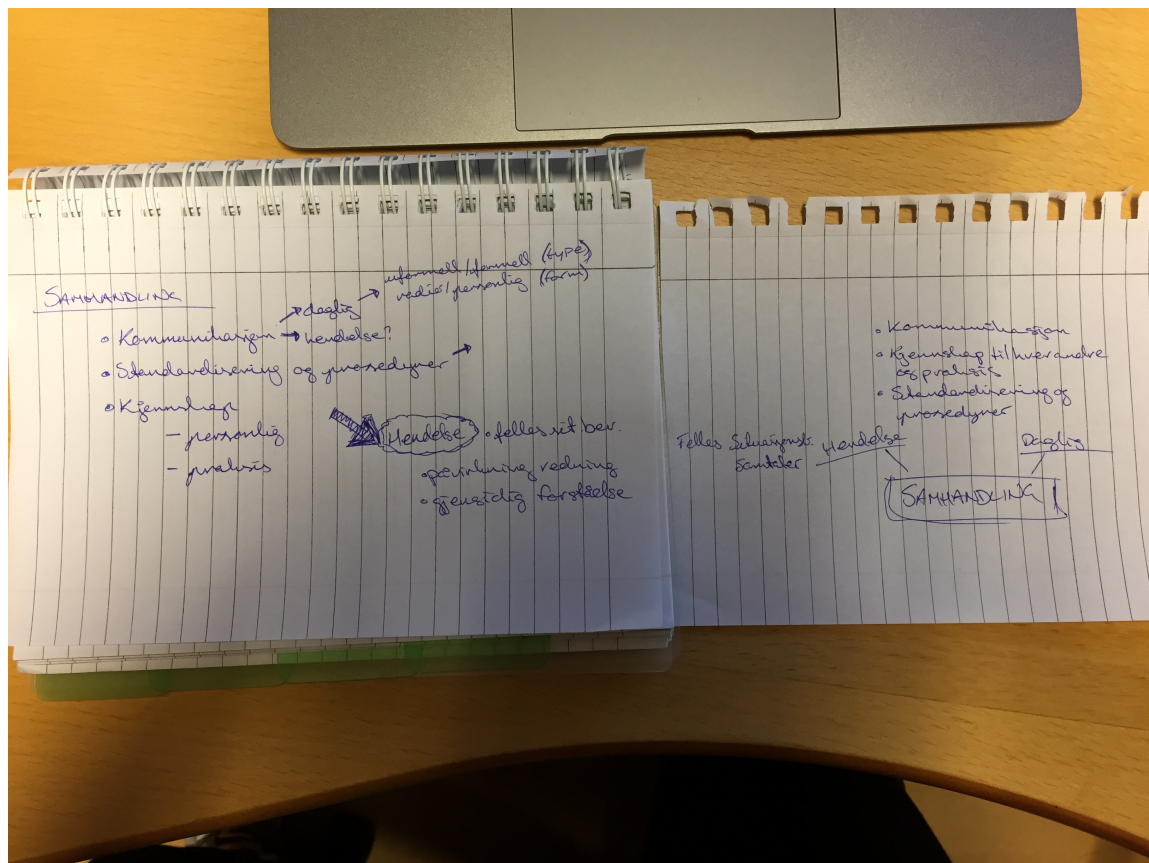 SAMHANDLING
• Kommunikasjon → daglig → uformell/formell (type)
radio/personlig (form)
→ hendelse?
• Standardisering og prosedyrer →
• Kjennskap
– personlig
– praksis
Hendelse • felles sit.bev.
• påvirkning redning
• gjensidig forståelse
• Kommunikasjon
• Kjennskap til hverandre
og praksis
• Standardisering og
prosedyrer
Felles Situasjonsb. Hendelse Daglig
Samtaler
SAMHANDLING